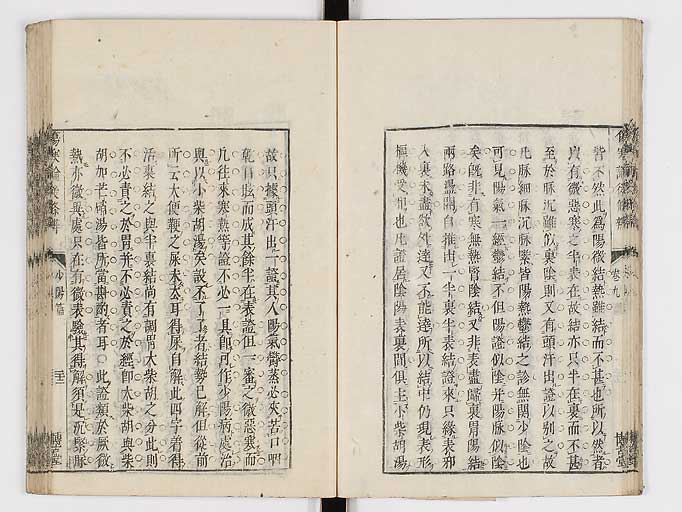 皆不然此為陽微結熱雖結而不甚也所以然者
真有微惡寒之半表在故結亦只半在裏而不甚
至於脉沉雖似裏陰則又有頭汗出證以別之故
凡脉細脉沉脉緊皆陽熱鬱結之診無關少陰也
可見陽氣一經鬱結不但陽證似陰并陽脉似陰
矣旣非有寒無熱腎陰結又非表盡歸裏胃陽結
兩路盡闢自推出一半裏半表結證來只緣表邪
入裏未盡欲外達又不能達所以結中仍現表形
樞機受阻也凡證屬陰陽表裏間俱主小柴胡湯
故只據頭汗出一證其人陽氣鬱蒸必夾苦口咽
乾目眩而成其餘半在表證但一審之微惡寒而
凡往來寒熱等證不必一具即可作少陽病處治
與以小柴胡湯矣設不了了者結勢已解但從前
所云大便鞕之屎未去耳得屎自解此四字着得
活柬結之與半裏結尚有調胃大柴胡之分此則
不必責之於胃并不必責之於經即大柴胡與柴
胡加芒硝湯皆所當斟酌者耳此證類於厥微
熱亦微異處只在有微表驗其得解須是沉緊脉
傷寒論後條辨
卷九
少陽篇
博古堂